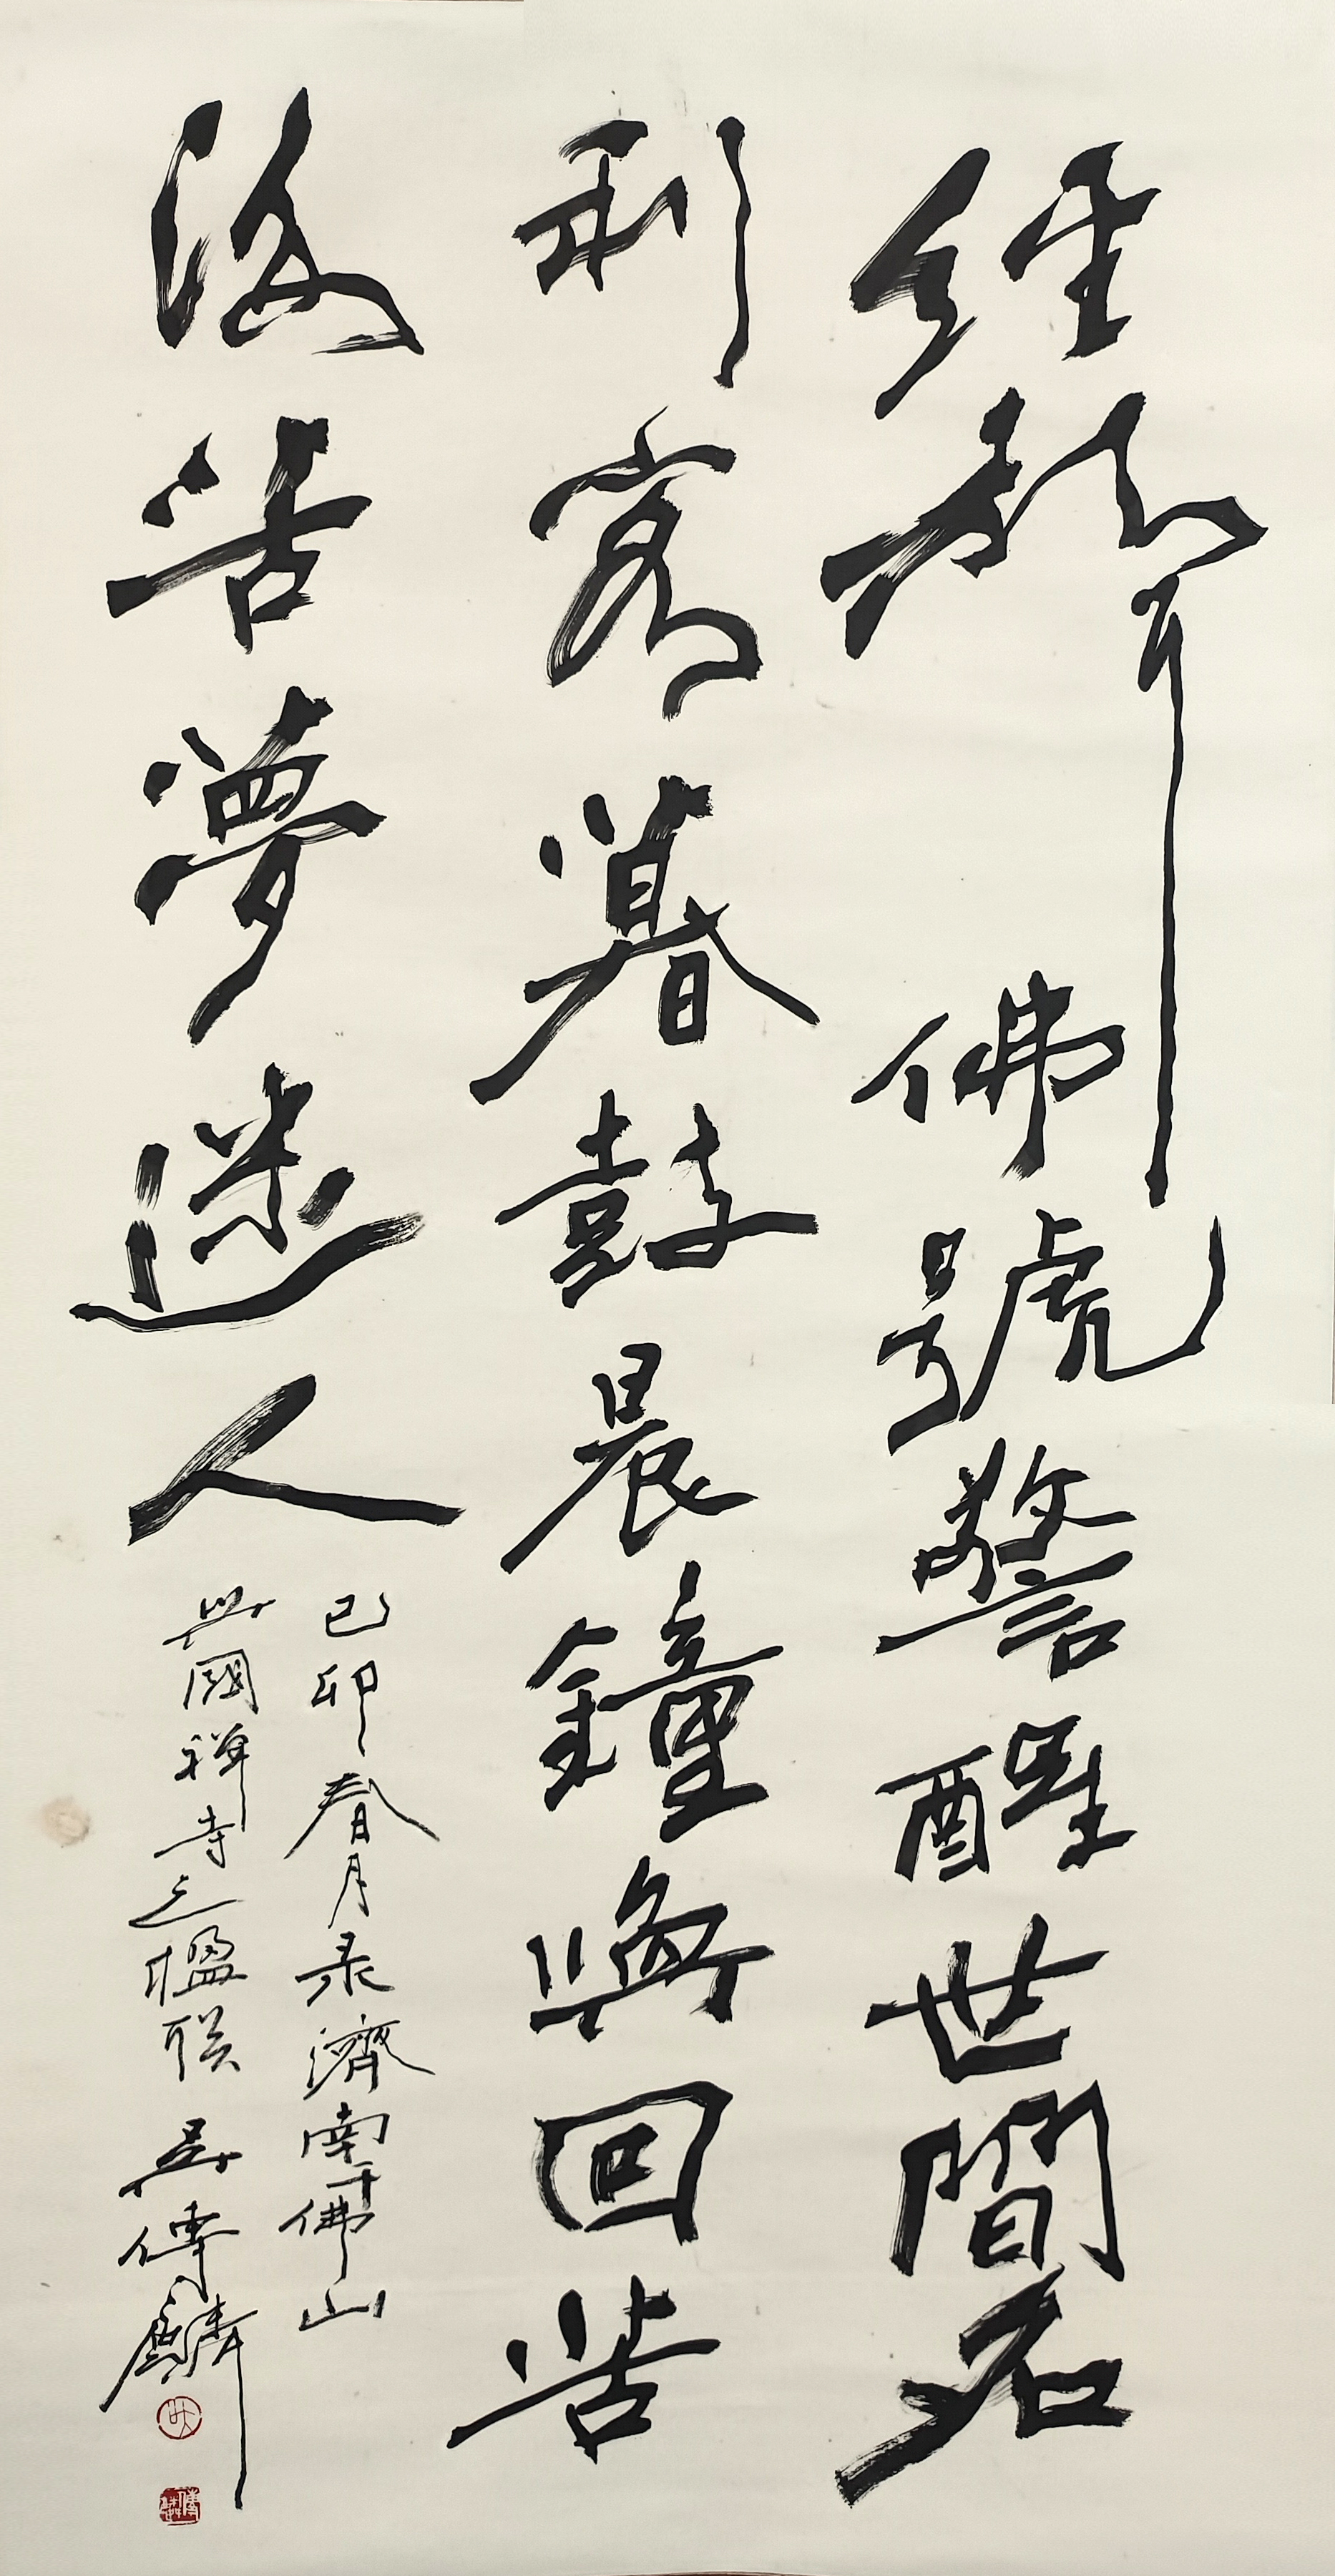 經聲佛號警醒世間名
利客暮鼓晨鐘喚回苦
海苦夢迷人
己卯春月录濟南千佛山
興國禪寺之楹联 吳傳麟
吴
傳麟